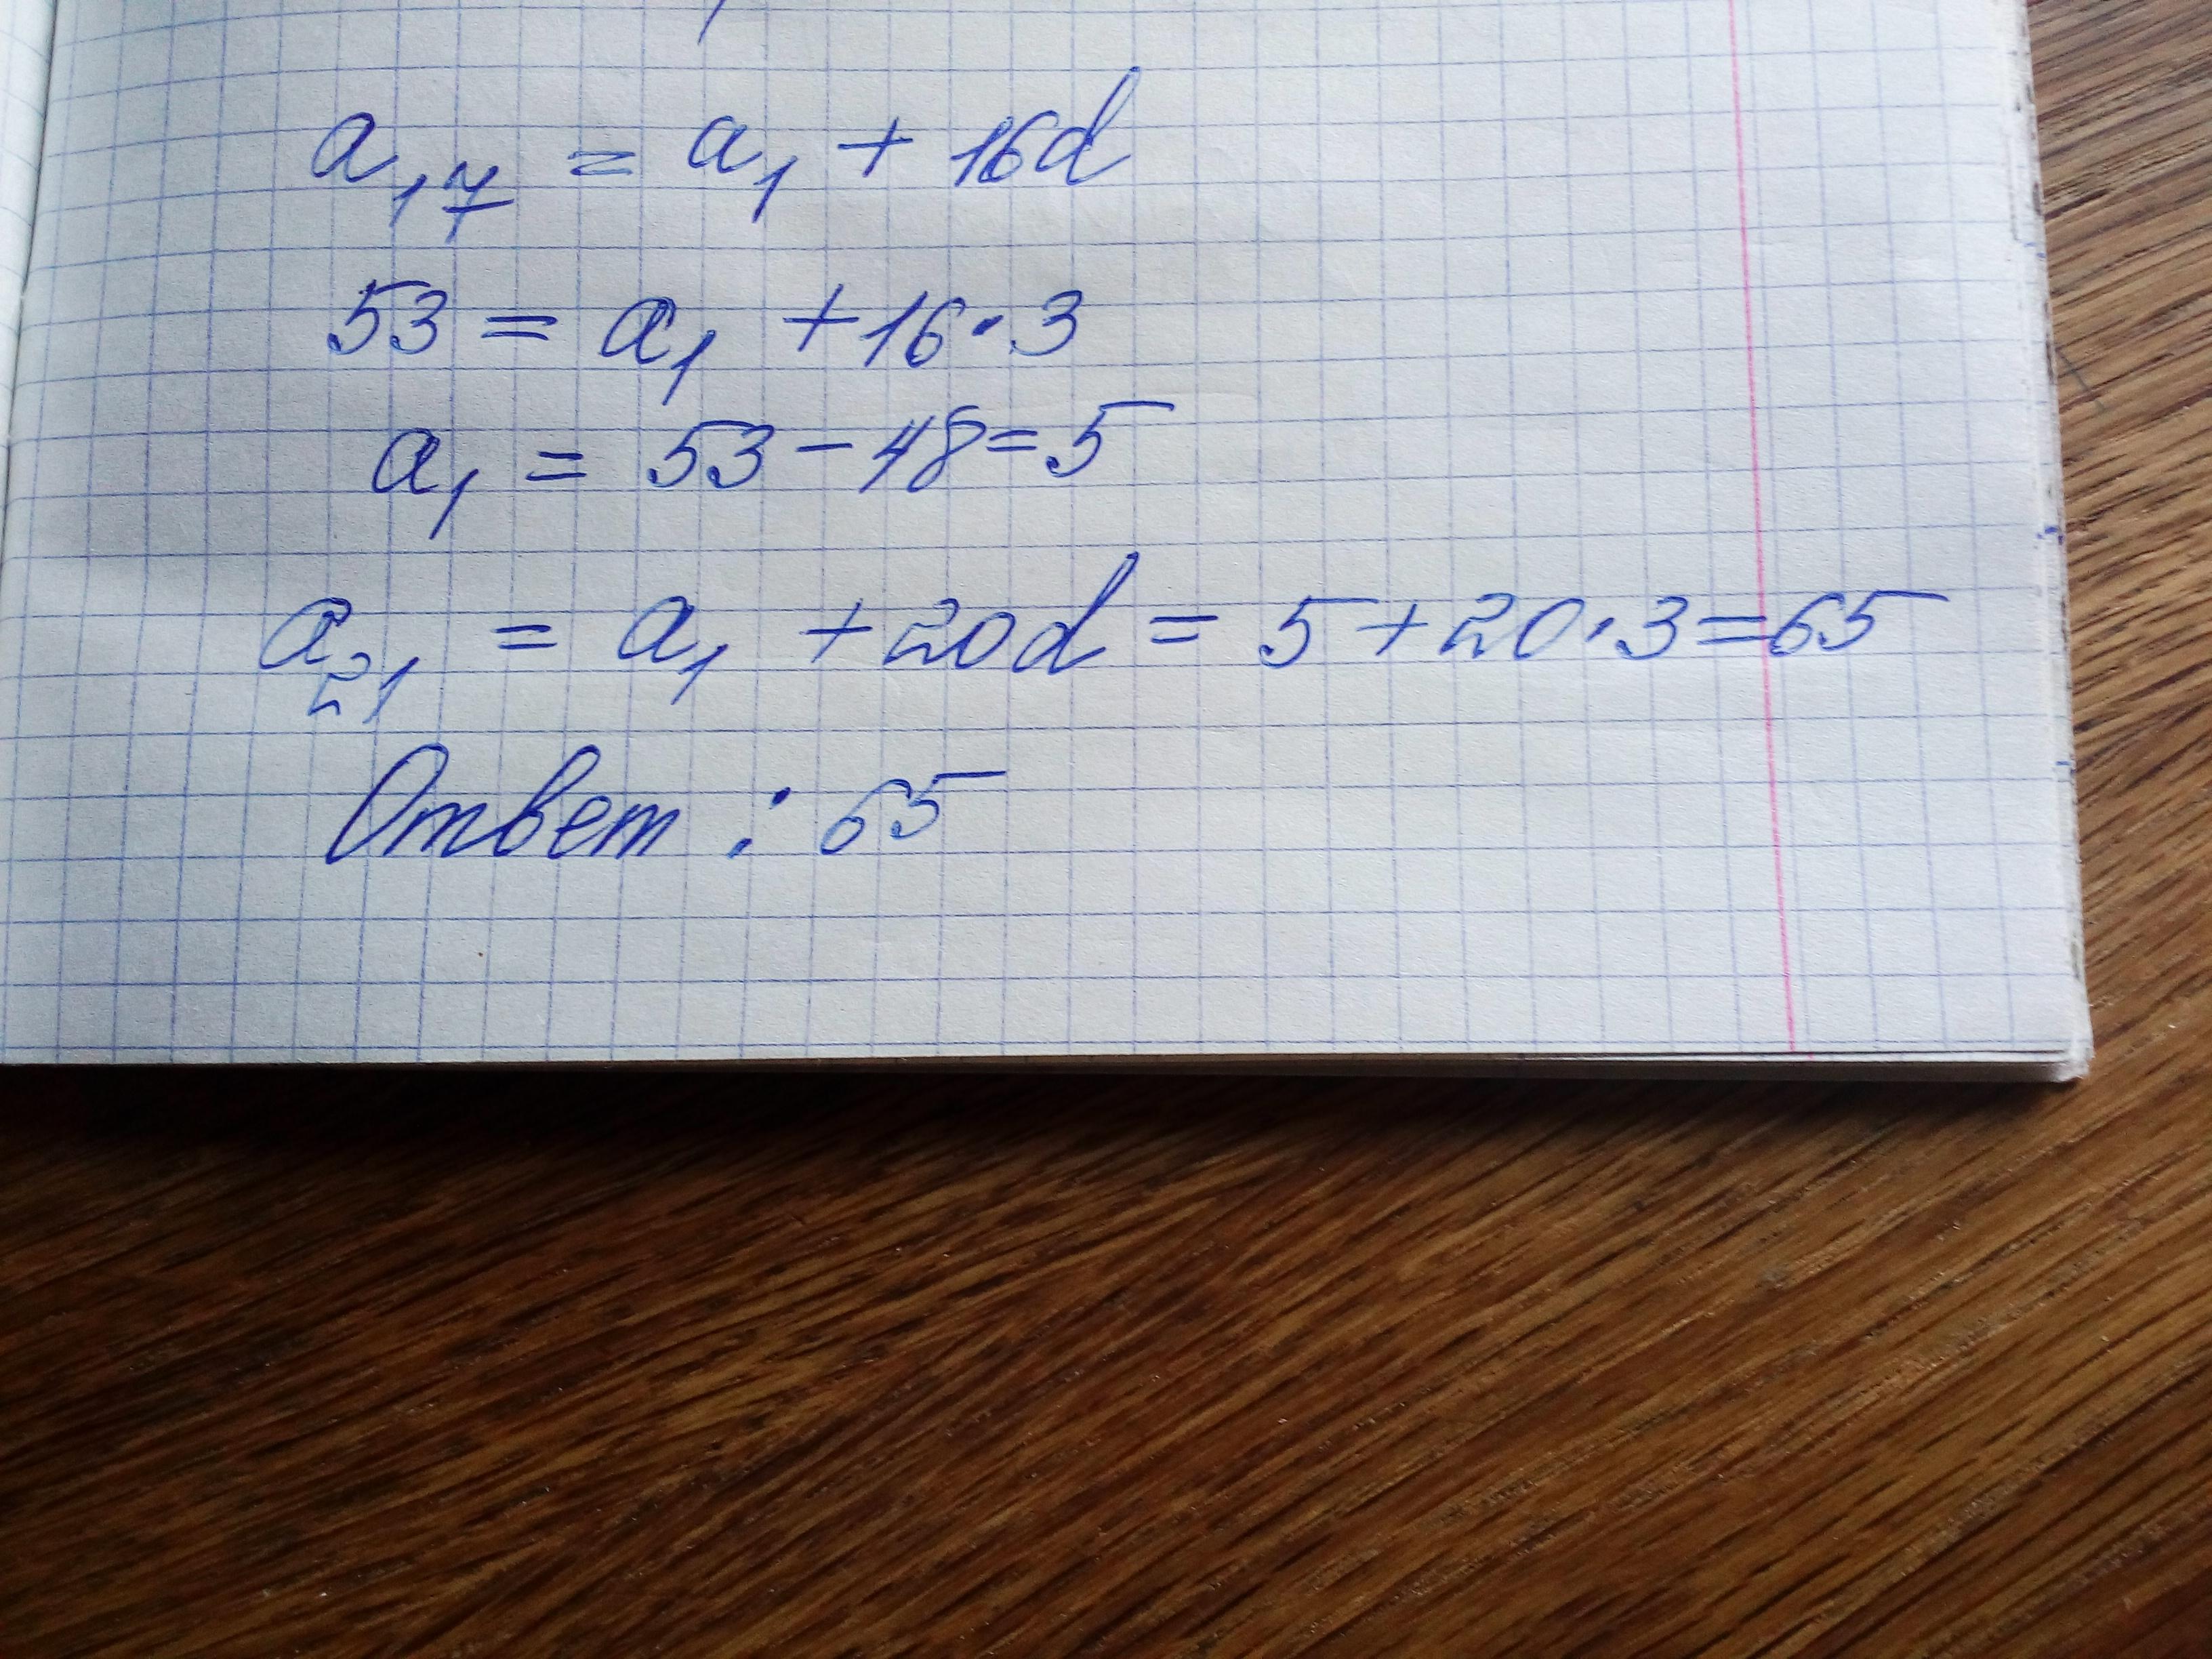 a₁₇ = a₁ + 16d
53 = a₁ + 16·3
a₁ = 53 - 48 = 5
a₂₁ = a₁ + 20d = 5 + 20·3 = 65
Ответ : 65